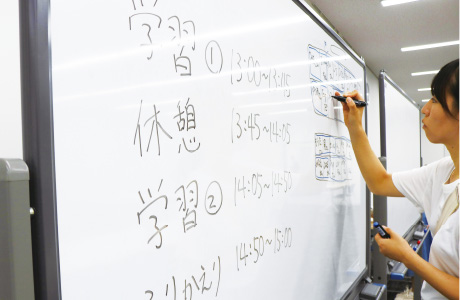 学習① 13:00~13:15
休憩 13:45~14:05
学習② 14:05~14:50
ふりかえり 14:50~15:00